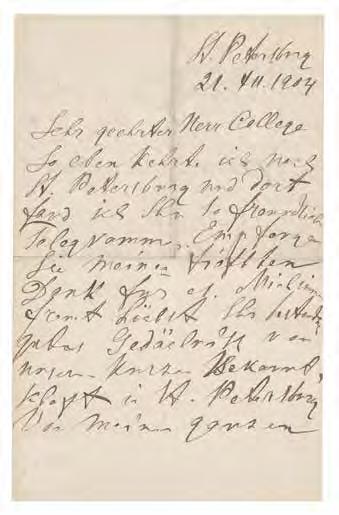 St. Petersburg
21. VII. 1904
Sehr geehrter Herr College
So eben kehrte ich nach
St. Petersburg und dort
fand ich Ihr so freundliches
Telegramm. Empfange
Sie meinen
Dank für es.
freut höchst Ihr
gutes Gedächtniss von
unserer kurzen Bekannt-
schaft in St. Petersburg
Von meinem ganzen